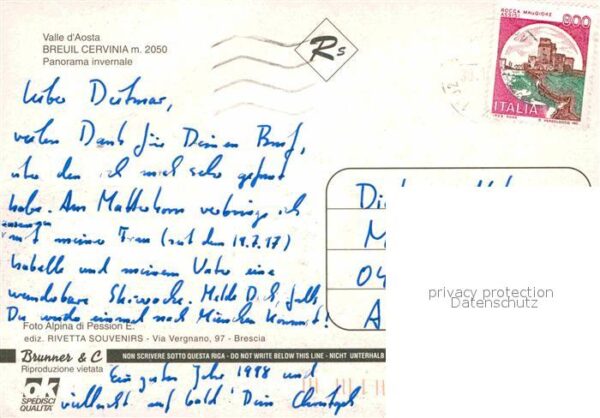 Valle d'Aosta
BREUIL CERVINIA m. 2050
Panorama invernale
Rs
ROCCA MAGGIORE
ASSISI
800
ITALIA
Lieber Dietmar,
vielen Dank für Deinen Brief,
über den ich mich sehr gefreut
habe. Am Matterhorn verbringe ich
mit meiner Frau (seit dem 19.7.97)
Isabelle und meinem Vater eine
wunderbare Skiwoche. Melde Dich, falls
Du wieder einmal nach München kommst!
Foto Alpina di Pession E.
ediz. RIVETTA SOUVENIRS - Via Vergnano, 97 - Brescia
Brunner & C
Riproduzione vietata
NON SCRIVERE SOTTO QUESTA RIGA - DO NOT WRITE BELOW THIS LINE - NICHT UNTERHALB
ok
SPEDISCI
QUALITÀ
Ein gutes Jahr 1998 und
vielleicht auf bald! Dein Christoph
04
A
privacy protection
Datenschutz